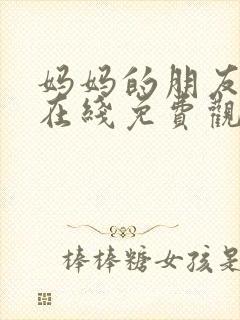 妈妈的朋友
在綫免費觀
棒棒糖女孩是